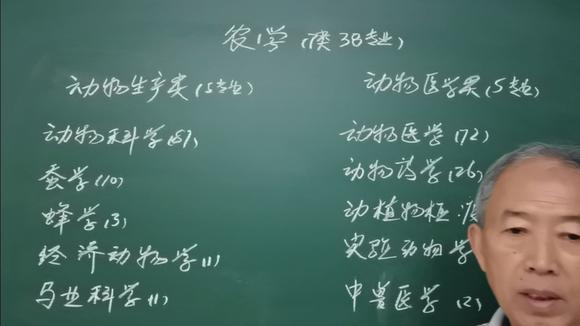 农学(7类38专业)
动物生产类(5专业)
动物科学(81)
蚕学(10)
蜂学(3)
经济动物学(1)
马业科学(1)
动物医学类(5专业)
动物医学(72)
动物药学(26)
动植物检
实验动物学
中兽医学(2)